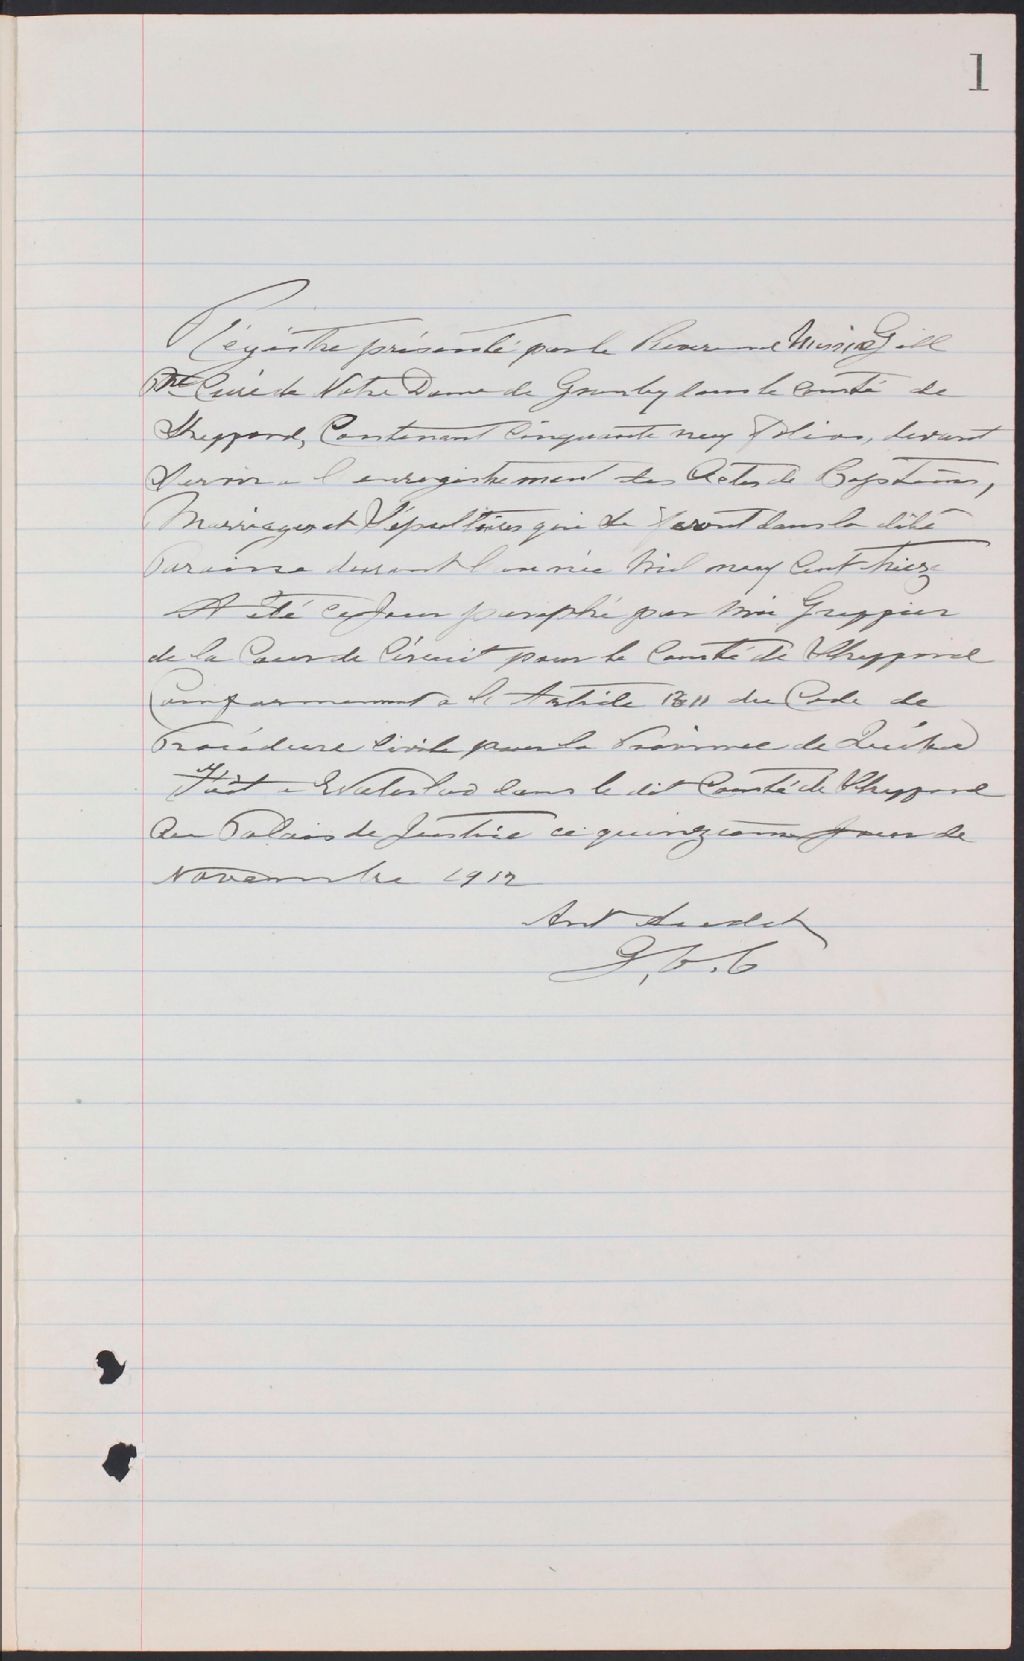 1
Régistre présenté par le Révérend Messire Gill
Ptre Curé de Notre Dame de Granby dans le comté de
Sheppard, Contenant Cinquante neuf Folios, devant
Servir a l enregistrement des Actes de Baptêmes,
Marriages et Sépultures qui se feront dans la dite
Paroisse durant l année Mil neuf Cent treize
A été ce Jour paraphé par Moi Greffier
de la Cour de Circuit pour le Comté de Sheppard
Conformement a l Article 1311 du Code de
Procédure Civile pour la Province de Québec
Fait a Waterloo dans le dit Comté de Sheppard
Au Palais de Justice ce quinzième Jour de
Novembre 1912
G. C. C